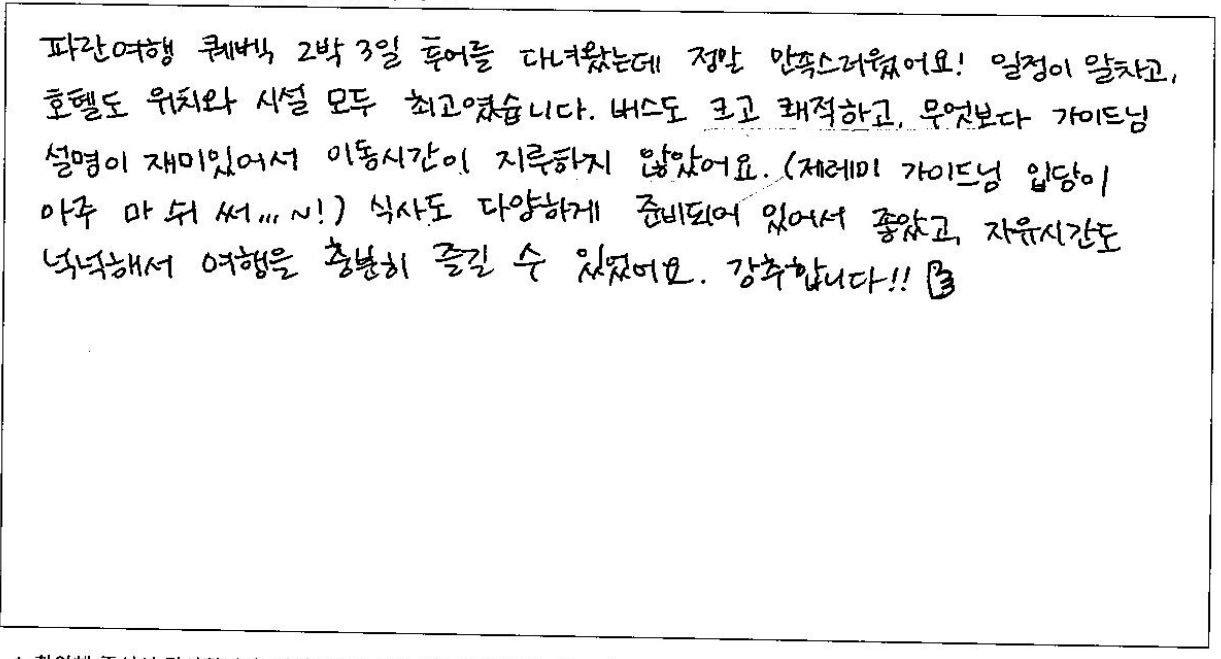 파란여행 퀘벡 2박 3일 투어를 다녀왔는데 정말 만족스러웠어요! 일정이 알차고,
호텔도 위치와 시설 모두 최고였습니다. 버스도 크고 쾌적하고, 무엇보다 가이드님
설명이 재미있어서 이동시간이 지루하지 않았어요. (제레미 가이드님 입담이
아주 마 쉬 써...~!) 식사도 다양하게 준비되어 있어서 좋았고, 자유시간도
넉넉해서 여행을 충분히 즐길 수 있었어요. 강추합니다!!